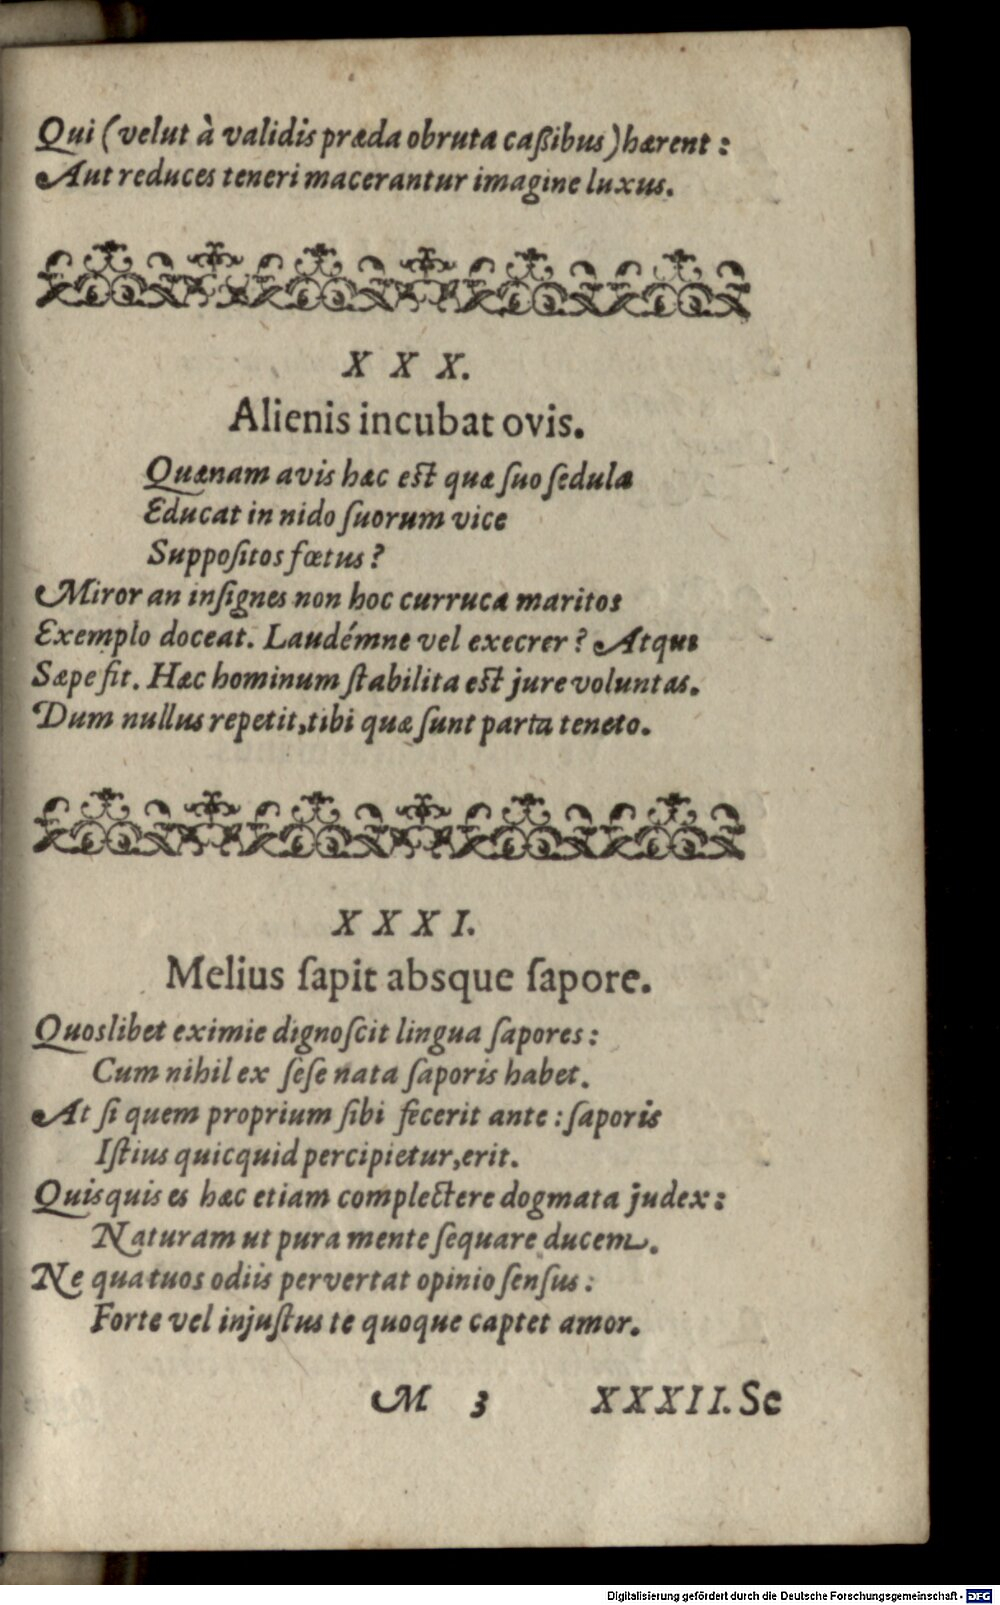 Qui (velut à validis præda obruta caßibus) hærent:
Aut reduces teneri macerantur imagine luxus.
X X X.
Alienis incubat ovis.
Quænam avis hæc est quæ ſuo ſedula
Educat in nido ſuorum vice
Suppoſitos fœtus?
Miror an inſignes non hoc curruca maritos
Exemplo doceat. Laudémne vel execrer? Atqui
Sæpe fit. Hæc hominum ſtabilita est jure voluntas.
Dum nullus repetit, tibi quæ ſunt parta teneto.
X X X I.
Melius ſapit absque ſapore.
Quoslibet eximie dignoſcit lingua ſapores:
Cum nihil ex ſeſe nata ſaporis habet.
At ſi quem proprium ſibi fecerit ante: ſaporis
Iſtius quicquid percipietur, erit.
Quisquis es hæc etiam complectere dogmata judex:
Naturam ut pura mente ſequare ducem.
Ne qua tuos odiis pervertat opinio ſenſus:
Forte vel injuſtus te quoque captet amor.
M 3 XXXII. Se
Digitalisierung gefördert durch die Deutsche Forschungsgemeinschaft - DFG